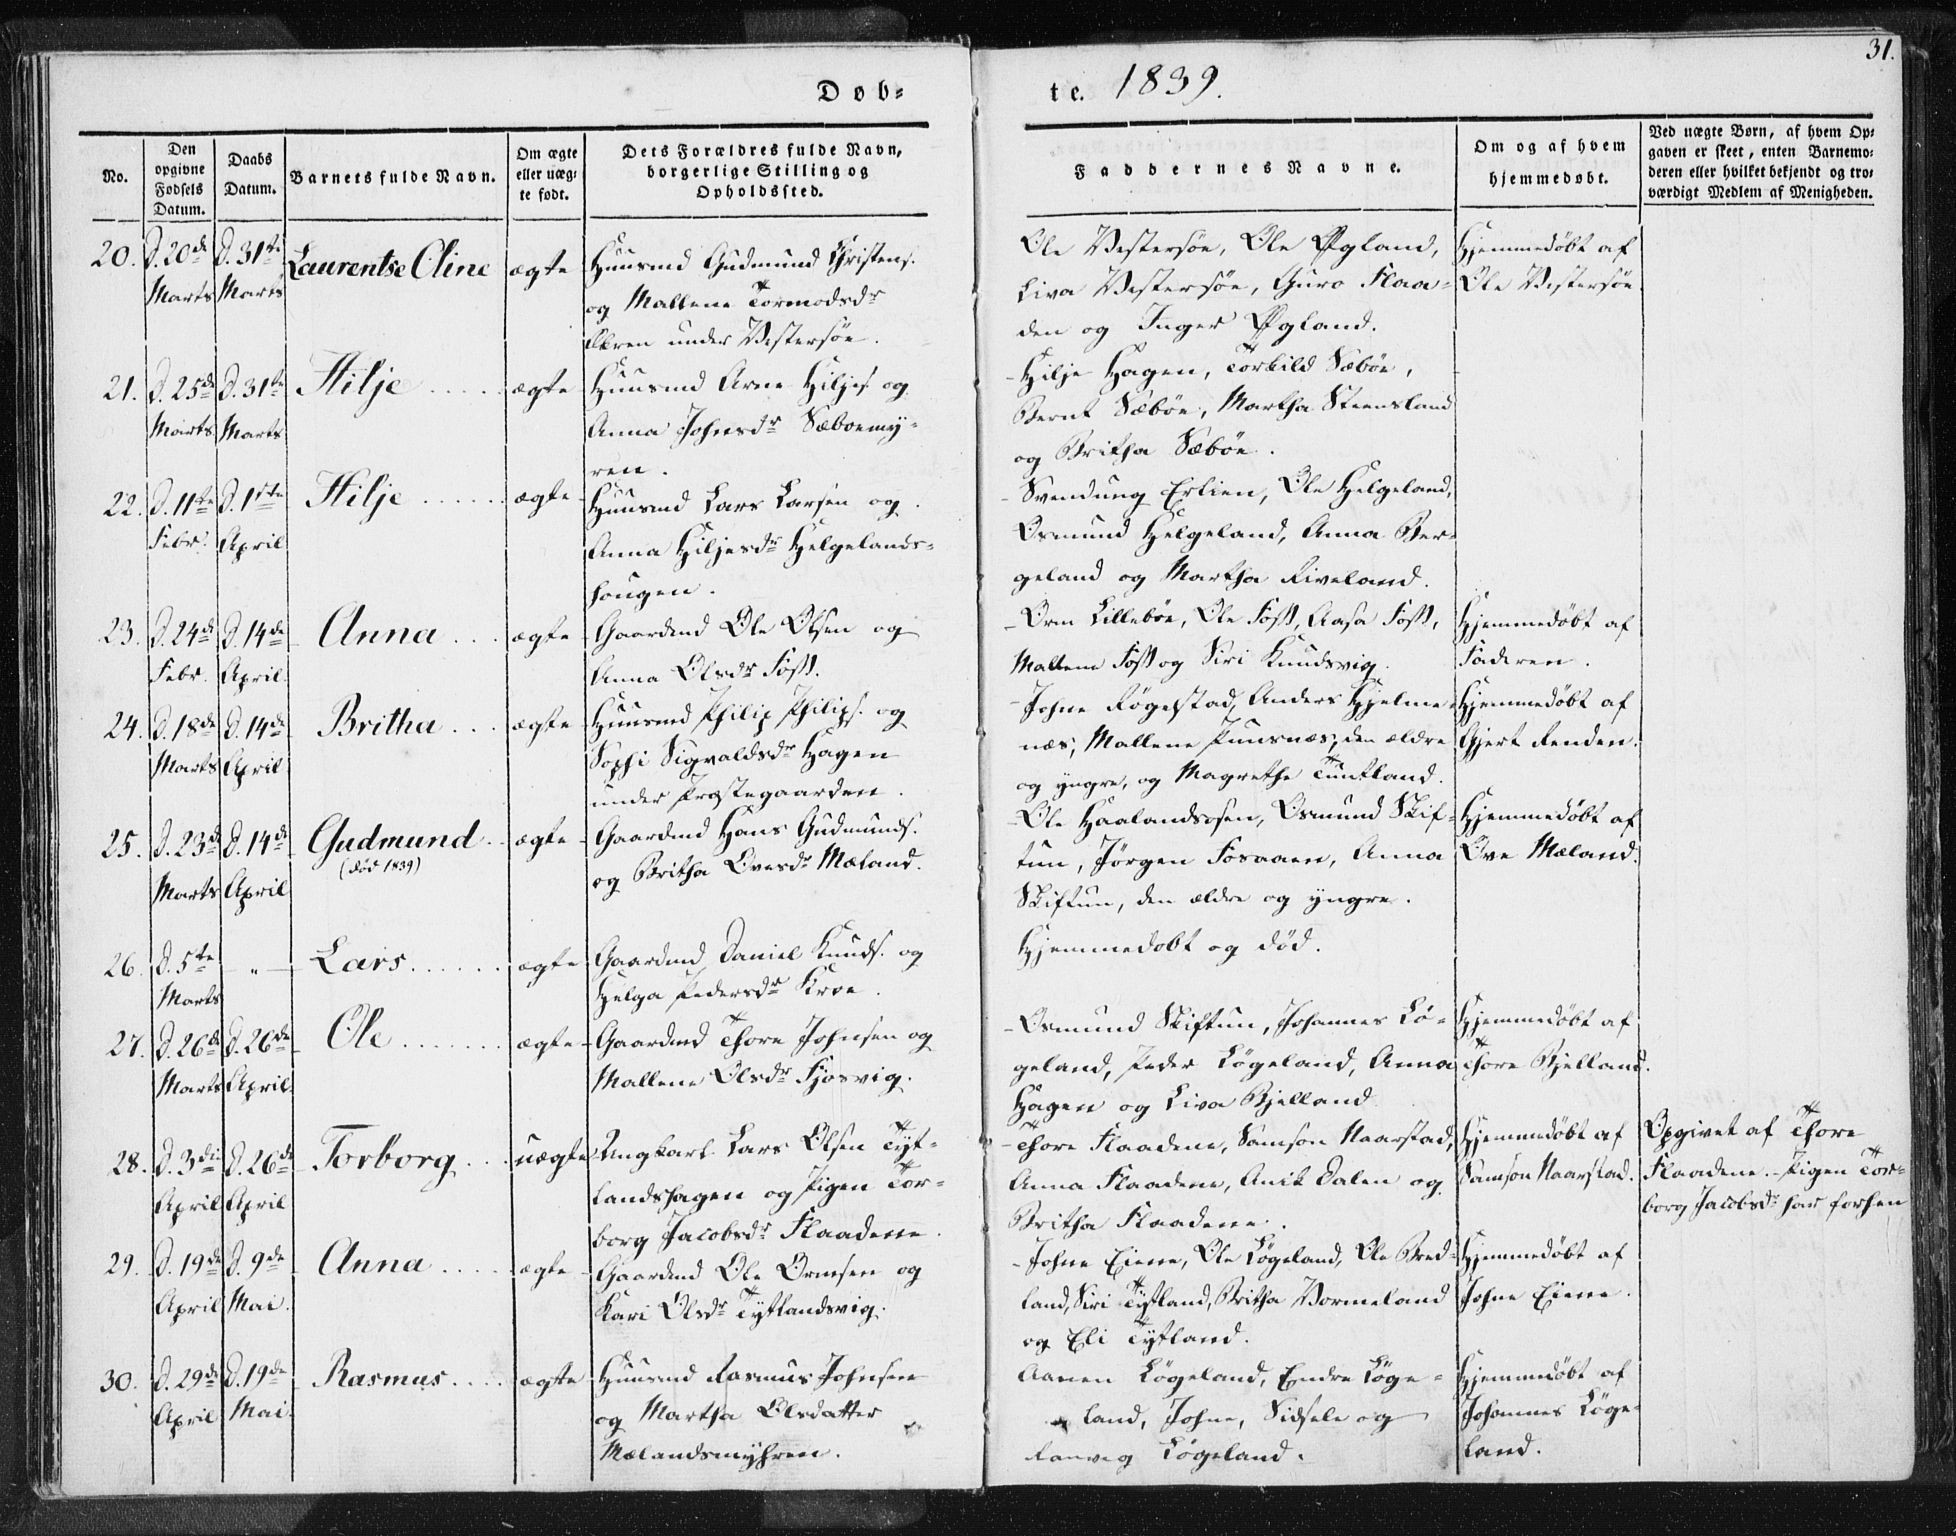 31.
Døb-
te. 1839.
No.
Den opgivne Fødsels Datum.
Daabs Datum.
Barnets fulde Navn.
Om ægte eller uæg- te født.
Dets Forældres fulde Navn, borgerlige Stilling og Opholdssted.
Faddernes Navne.
Om og af hvem hjemmedøbt.
Ved uægte Børn, af hvem Op- gaven er skeet, enten Barnemo- deren eller hvilket bekjendt og tro- værdigt Medlem af Menigheden.
20. D. 20de Marts D. 31te Marts Laurentse Eline ægte
Huusmd Gudmund Christens.
og Mallene Tormodsdr
under Vestersöe.
Ole Vestersöe, Ole Øgland,
Liva Vestersöe, Guro Flaa-
den og Inger Øgland.
Hjemmedöbt af
Ole Vestersöe.
21. D. 25de Marts D. 31te Marts Hilje ..... ægte
Huusmd Arne Hiljes. og
Anna Johnsdr Sæboemy-
ren.
- Hilje Hagen, Torkild Sæböe,
Bernt Sæböe, Martha Steensland
og Britha Sæböe.
22. D. 11te Febr. D. 1ste April Hilje ...... ægte
Huusmd Lars Larsen og
Anna Hiljesdr Helgelands-
hougen.
- Svendung Erlien, Ole Helgeland,
Osmund Helgeland, Anna Ber-
geland og Martha Riveland.
23. D. 24de Febr. D. 14de April Anna ... ægte
Gaardmd Ole Olsen og
Anna Olsdr Foss.
- Orm Lilleböe, Ole Foss, Aasa Foss,
Mallene Foss og Siri Knudsvig.
Hjemmedöbt af
Faderen.
24. D. 18de Marts D. 14de April Britha ... ægte
Huusmd Philip Philips. og
Sophi Sigvaldsdr Hagen
under Præstegaarden.
- Johne Rögelstad, Anders Hjelme-
næs, Mallene Puusnæs, den ældre
og yngre, og Magrethe Tuntland.
Hjemmedöbt af
Gjert Renden.
25. D. 23de Marts D. 14de April Gudmund .. ægte
(död 1839)
Gaardmd Hans Gudmunds.
og Britha Ovesdr Mæland.
- Ole Haalandsosen, Osmund Skif-
tun, Jörgen Fosaaen, Anna
Skiftun, den ældre og yngre.
Hjemmedöbt af
Ove Mæland.
26. D. 5te Marts - " - Lars ...... ægte
Gaardmd Daniel Knuds. og
Helga Pedersdr Kroe.
Hjemmedobt og död.
27. D. 26de Marts D. 26de April Ole ....... ægte
Gaardmd Thore Johnsen og
Mallene Olsdr Fjosvig.
- Osmund Skiftun, Johannes Lö-
geland, Peder Lögeland, Anna
Hagen og Liva Bjelland
Hjemmedöbt af
Thore Bjelland.
28. D. 3die April D. 26de April Torborg ... uægte
Ungkarl Lars Olsen Tyt-
landshagen og Pigen Tor-
borg Jacobsdr Flaadene.
- Thore Flaadene, Samson Naarstad,
Anna Flaadene, Anik Dalen og
Britha Flaadene.
Hjemmedöbt af
Samson Naarstad.
Opgivet af Thore
Flaadene. - Pigen Tor-
borg Jacobsdr har forhen
29. D. 19de April D. 9de Mai. Anna ..... ægte
Gaardmd Ole Ormsen og
Kari Olsdr Tytlandsvig.
- Johne Eiene, Ole Lögeland, Ole Bred-
land, Siri Tytland, Britha Vormeland
og Eli Tytland.
Hjemmedöbt af
Johne Eiene.
30. D. 29de April D. 19de Mai. Rasmus .... ægte
Huusmd Rasmus Johnsen
og Martha Olsdatter
Mælandsmyhren.
Aanen Lögeland, Endre Löge-
land, Johne, Sidsele og
Ranveg Lögeland.
Hjemmedöbt af
Johannes Löge-
land.